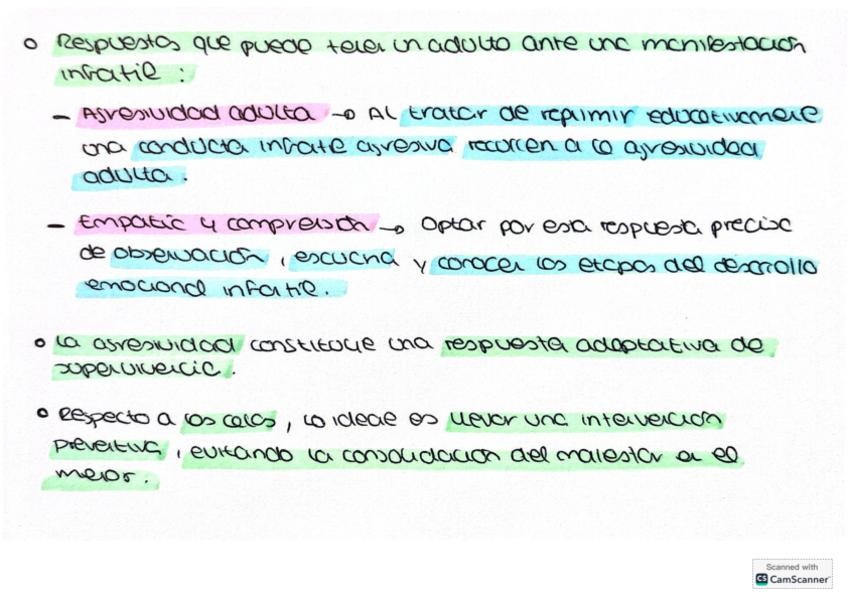 o Respuestas que puede tener un adulto ante una manifestación
infantil :
- Agresividad adulta → Al tratar de reprimir educativamente
una conducta infantil agresiva recurren a la agresividad
adulta.
- Empatía y comprensión → Optar por esta respuesta precisa
de observación, escucha y conocer las etapas del desarrollo
emocional infantil.
o La agresividad constituye una respuesta adaptativa de
supervivencia.
o Respecto a los celos, lo ideal es llevar una intervención
preventiva, evitando la consolidación del malestar en el
menor.
Scanned with
CS CamScanner